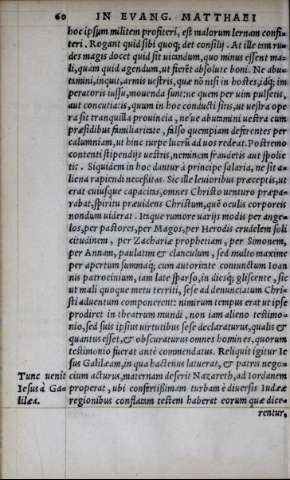 60 IN EVANG. MATTHAEI
hoc ipsum militem profiteri, est malorum lernam confi-
teri. Rogant quid sibi quoq; det consilij. At ille tam ru-
des magis docet quid sit uitandum, quo minus essent ma-
li, quàm quid agendum, ut fierēt absolute boni. Ne abu-
tamini, inquit, armis uestris, quæ nō nisi in hostes, idq; im
peratoris iussu, mouenda sunt: ne quem per uim pulsetis,
aut concutiatis, quum in hoc conducti sitis, ut uestra ope
ra sit tranquilla prouincia, ne'ue abutamini uestra cum
præfectis familiaritate, falso quempiam deferentes per
calumniam, ut hinc turpe lucrū ad uos redeat. Postremo
contenti stipendijs uestris, neminem fraudetis aut spolie
tis. Siquidem in hoc dantur à principe salaria, ne sit a-
liena rapiendi necessitas. Sic ille leuioribus præceptis, ut
erat cuiusque capacitas, omnes Christo uenturo præpa-
rabat, spiritu præuidens Christum, quē oculis corporeis
nondum uiderat. Itaque rumore uarijs modis per ange-
los, per pastores, per Magos, per Herodis crudelem soli
citudinem, per Zachariæ prophetiam, per Simeonem,
per Annam, paulatim & clanculum, sed multo maxime
per apertum summaq; cum autoritate coniunctum Ioan
nis patrocinium, iam late sparso, in diesq; gliscente, sic
ut mali quoque metu territi, sese ad denunciatum Chri-
sti aduentum componerent: nimirum tempus erat ut ipse
prodiret in theatrum mundi, non iam alieno testimo-
nio, sed suis ipsius uirtutibus sese declaraturus, qualis &
quantus esset, & obscuraturus omnes homines, quorum
testimonio fuerat ante commendatus. Reliquit igitur Ie
sus Galilæam, in qua hactenus latuerat, & patris nego-
Tunc uenit cium acturus, maternam deserit Nazareth, ad Iordanem
Iesus à Ga- properat, ubi confertissimam turbam è diuersis Iudææ
lilæa. regionibus conflatam testem haberet eorum quæ dice-
rentur,